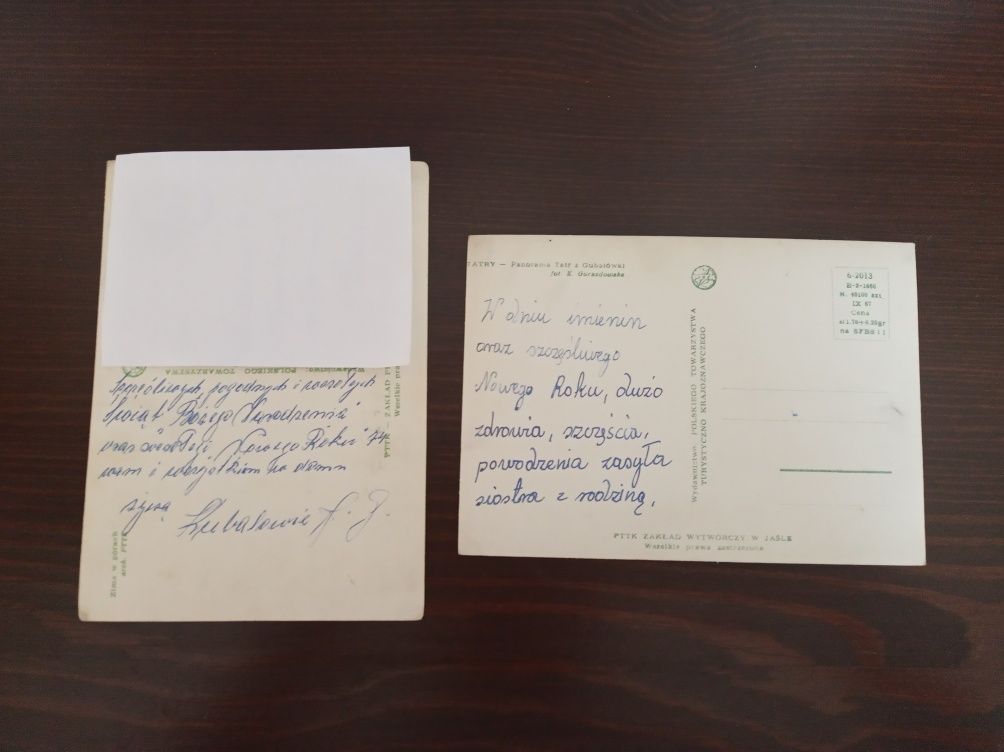 WYDAWNICTWO: POLSKIEGO TOWARZYSTWA
PTTK - ZAKŁAD
Wszelkie pra
pogodnych i wesołych
Świąt "Bożego Narodzenia"
oraz Nowego Roku 74
wam i wszystkim w domu
życzą
Zima w górach
TATRY — Panorama Tatr z Gubałówki
fot. K. Gorazdowska
W dniu imienin
oraz szczęśliwego
Nowego Roku, dużo
zdrowia, szczęścia,
powodzenia zasyła
siostra z rodziną,
Wydawnictwo POLSKIEGO TOWARZYSTWA
TURYSTYCZNO KRAJOZNAWCZEGO
6-2013
IX 67
Cena
PTTK ZAKŁAD WYTWÓRCZY W JAŚLE
Wszelkie prawa zastrzeżone